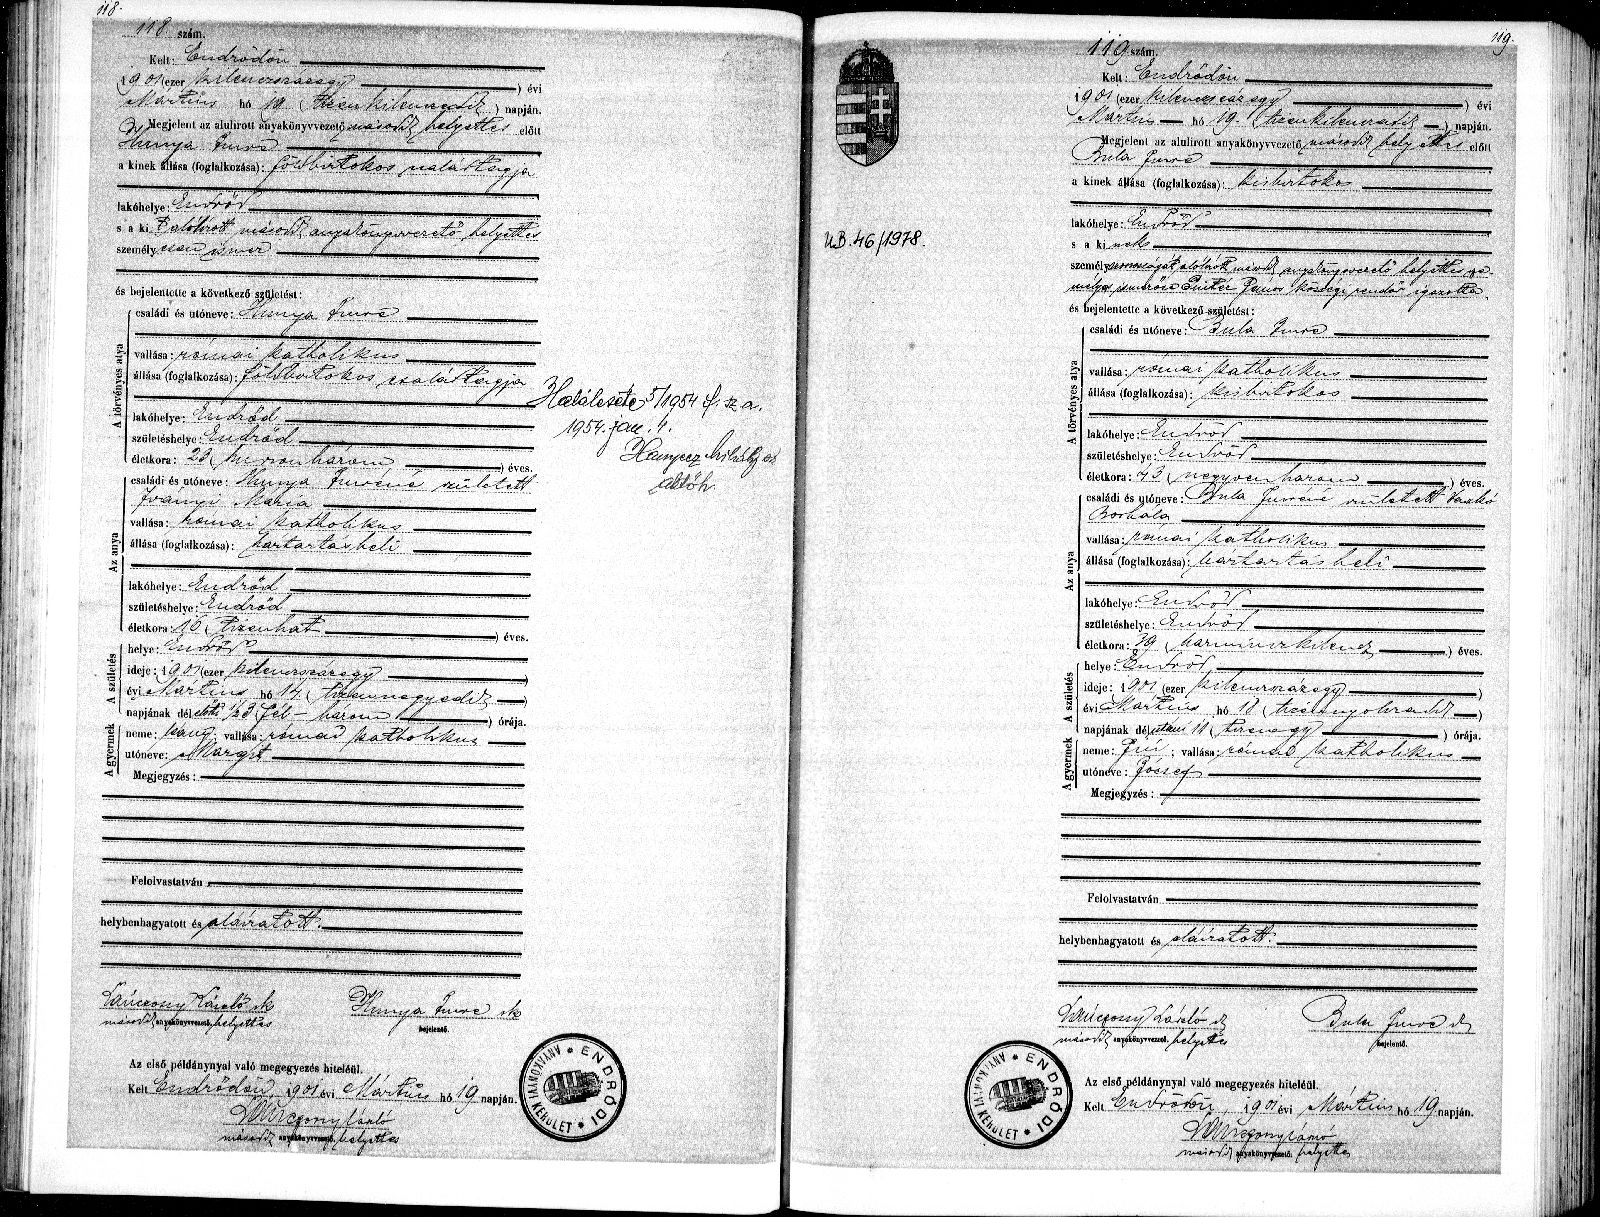 118.
118 szám.
Kelt: Endrődön
1901 (ezer kilenczszázegy) évi
Mártius hó 19. (tizenkilenczedik) napján.
Megjelent az alulirott anyakönyvvezető második helyettes előtt
Hunya Imre
a kinek állása (foglalkozása): földbirtokos családtagja
lakóhelye: Endrőd
s a ki alólirott második anyakönyvvezető helyettes
személyesen ismer
és bejelentette a következő születést:
A törvényes atya
családi és utóneve: Hunya Imre
vallása: római katholikus
állása (foglalkozása): földbirtokos családtagja
lakóhelye: Endrőd
születéshelye: Endrőd
életkora: 23 (huszonhárom) éves.
Az anya
családi és utóneve: Hunya Imréné született
Iványi Mária
vallása: római katholikus
állása (foglalkozása): háztartásbeli
lakóhelye: Endrőd
születéshelye: Endrőd
életkora: 16 (tizenhat) éves.
A születés
helye: Endrőd
ideje: 1901 (ezer kilenczszázegy)
évi Mártius hó 14. (tizennegyedik)
napjának dél előtti 1/2 3 (fél-három) órája.
A gyermek
neme: leány; vallása: római katholikus
utóneve: Margit
Megjegyzés:
Felolvastatván
helybenhagyatott és aláiratott.
László sk
Hunya Imre sk
második anyakönyvvezető helyettes
bejelentő.
Az első példánynyal való megegyezés hiteléül.
Kelt Endrődön, 1901 évi Mártius hó 19 napján.
László
második anyakönyvvezető helyettes
ENDRŐDI ANYAKÖNYVI KERÜLET
Halálesete 5/1954 f. sz. a.
1954. jan. 4.
Mihály
119.
119 szám.
Kelt: Endrődön
1901 (ezer kilenczszázegy) évi
Mártius hó 19. (tizenkilenczedik) napján.
Megjelent az alulirott anyakönyvvezető második helyettes előtt
Bula Imre
a kinek állása (foglalkozása): kisbirtokos
lakóhelye: Endrőd
s a kinek
személyazonosságát alólirott második anyakönyvvezető helyettes sze-
mélyes ismerőse Pintér János községi rendőr igazolta.
és bejelentette a következő születést:
A törvényes atya
családi és utóneve: Bula Imre
vallása: római katholikus
állása (foglalkozása): kisbirtokos
lakóhelye: Endrőd
születéshelye: Endrőd
életkora: 43 (negyvenhárom) éves.
Az anya
családi és utóneve: Bula Imréné született
Borbála
vallása: római katholikus
állása (foglalkozása): háztartásbeli
lakóhelye: Endrőd
születéshelye: Endrőd
életkora: 39 (harminczkilencz) éves.
A születés
helye: Endrőd
ideje: 1901 (ezer kilenczszázegy)
évi Mártius hó 18 (tizennyolczadik)
napjának dél utáni 11 (tizenegy) órája.
A gyermek
neme: Fiú; vallása: római katholikus
utóneve: József
Megjegyzés:
Felolvastatván
helybenhagyatott és aláiratott.
László sk
Bula Imre sk
második anyakönyvvezető helyettes
bejelentő.
Az első példánynyal való megegyezés hiteléül.
Kelt Endrődön, 1901 évi Mártius hó 19 napján.
László
második anyakönyvvezető helyettes
ENDRŐDI ANYAKÖNYVI KERÜLET
UB. 46/1978.